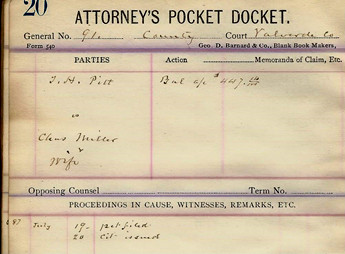 20
ATTORNEY'S POCKET DOCKET.
General No. 91. County Court Valverde Co
Form 540 Geo. D. Barnard & Co., Blank Book Makers,
PARTIES Action Memoranda of Claim, Etc.
J. H. Pitt Bal a/c $447.
vs
Chas Miller
&
Wife
Opposing Counsel Term No.
PROCEEDINGS IN CAUSE, WITNESSES, REMARKS, ETC.
July 19 - Pet filed
20 Cit issued